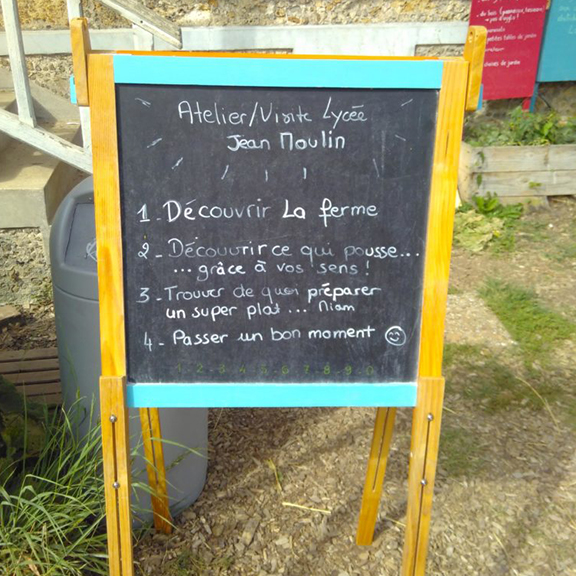 Atelier/Visite Lycée
Jean Moulin
1 - Découvrir La ferme
2 - Découvrir ce qui pousse...
... grâce à vos sens !
3 - Trouver de quoi préparer
un super plat ... Niam
4 - Passer un bon moment ☺
1 2 3 4 5 6 7 8 9 0